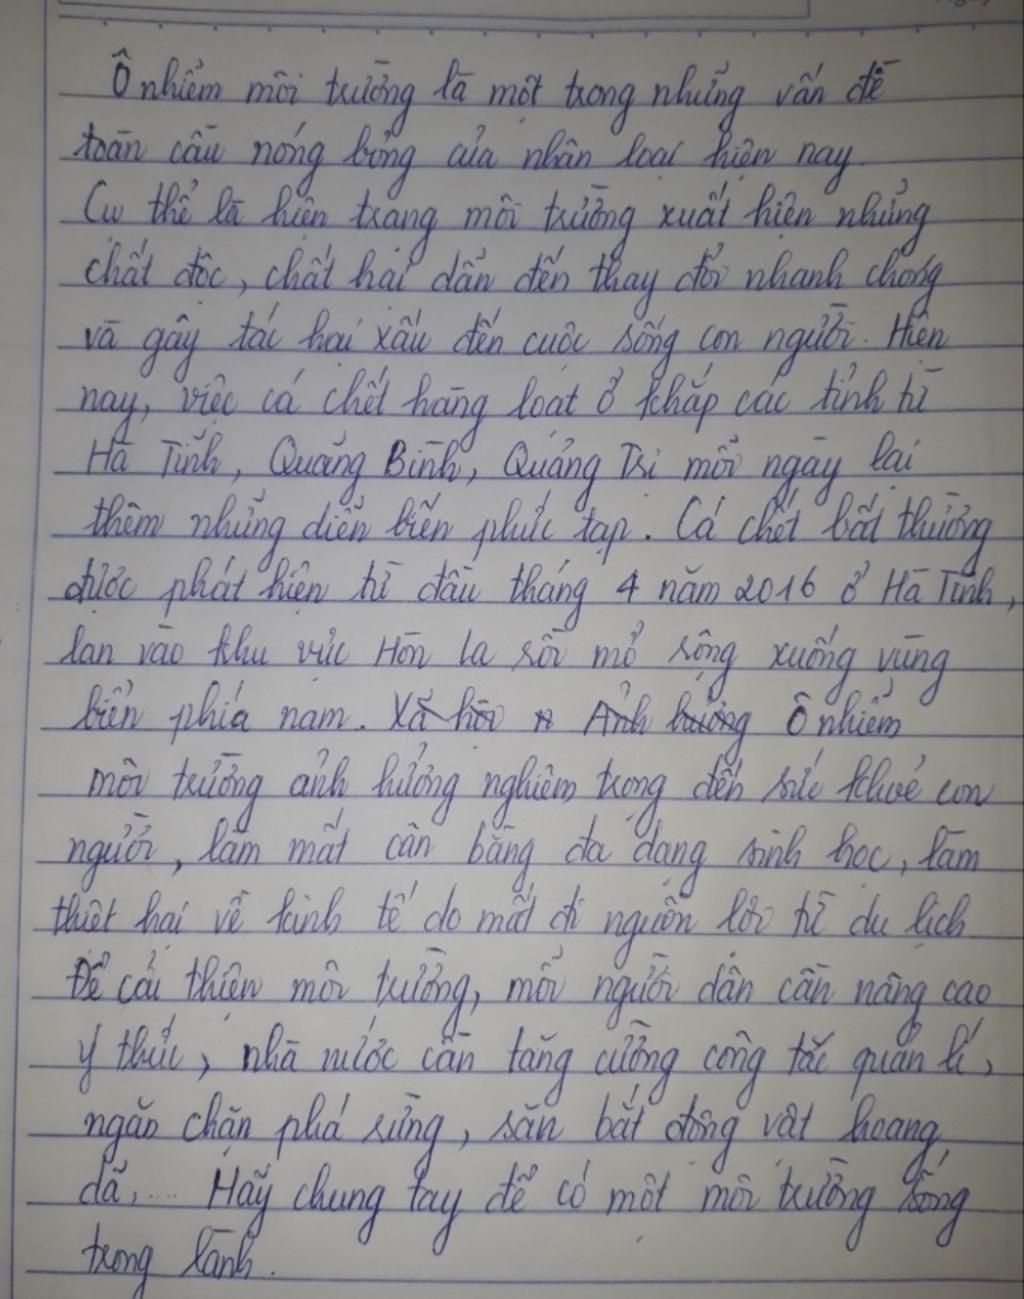 Ô nhiễm môi trường là một trong những vấn đề
toàn cầu nóng bỏng của nhân loại hiện nay.
Cụ thể là hiện trạng môi trường xuất hiện những
chất độc, chất hại dẫn đến thay đổi nhanh chóng
và gây tác hại xấu đến cuộc sống con người. Hiện
nay, việc cá chết hàng loạt ở khắp các tỉnh từ
Hà Tĩnh, Quảng Bình, Quảng Trị mỗi ngày lại
thêm những diễn biến phức tạp. Cá chết bất thường
được phát hiện từ đầu tháng 4 năm 2016 ở Hà Tĩnh,
lan vào khu vực Hòn La rồi mở rộng xuống vùng
biển phía nam. Xã hội n Ảnh hưởng Ô nhiễm
môi trường ảnh hưởng nghiêm trọng đến sức khoẻ con
người, làm mất cân bằng đa dạng sinh học, làm
thiệt hại về kinh tế do mất đi nguồn lợi từ du lịch
Để cải thiện môi trường, mỗi người dân cần nâng cao
ý thức, nhà nước cần tăng cường công tác quản lí,
ngăn chặn phá rừng, săn bắt động vật hoang
dã,.... Hãy chung tay để có một môi trường sống
trong lành.